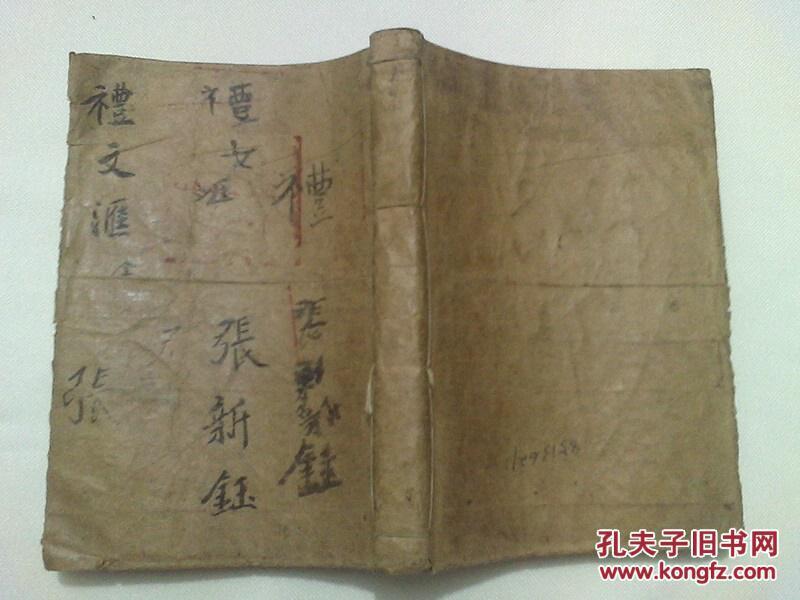 禮文滙全
張
禮文滙
張新鈺
禮
張
鈺
孔夫子旧书网
www.kongfz.com